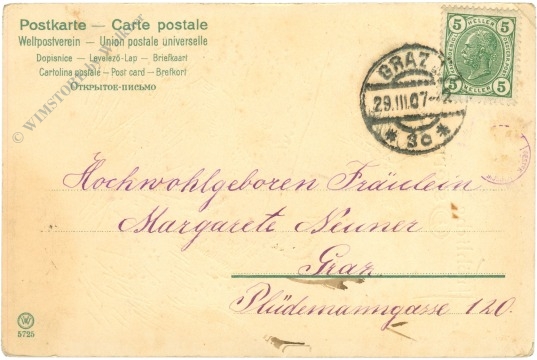 Postkarte — Carte postale
Weltpostverein — Union postale universelle
Dopisnice — Levelező-Lap — Briefkaart
Cartolina postale — Post card — Brefkort
Открытое письмо
© WIMSTORE by Walkner
5 HELLER 5
5 HELLER 5
GRAZ
29.III.07
* 3c *
Hochwohlgeboren Fräulein
Margarete Neuner
Graz
Plüdemanngasse 120.
5725